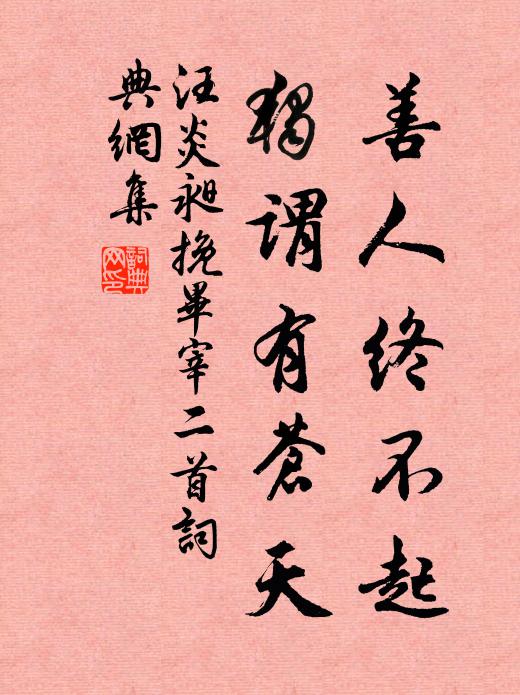 善人终不起
犹谓有苍天
汪炎昶挽畢宰二首詞
典網集
詞典
网印